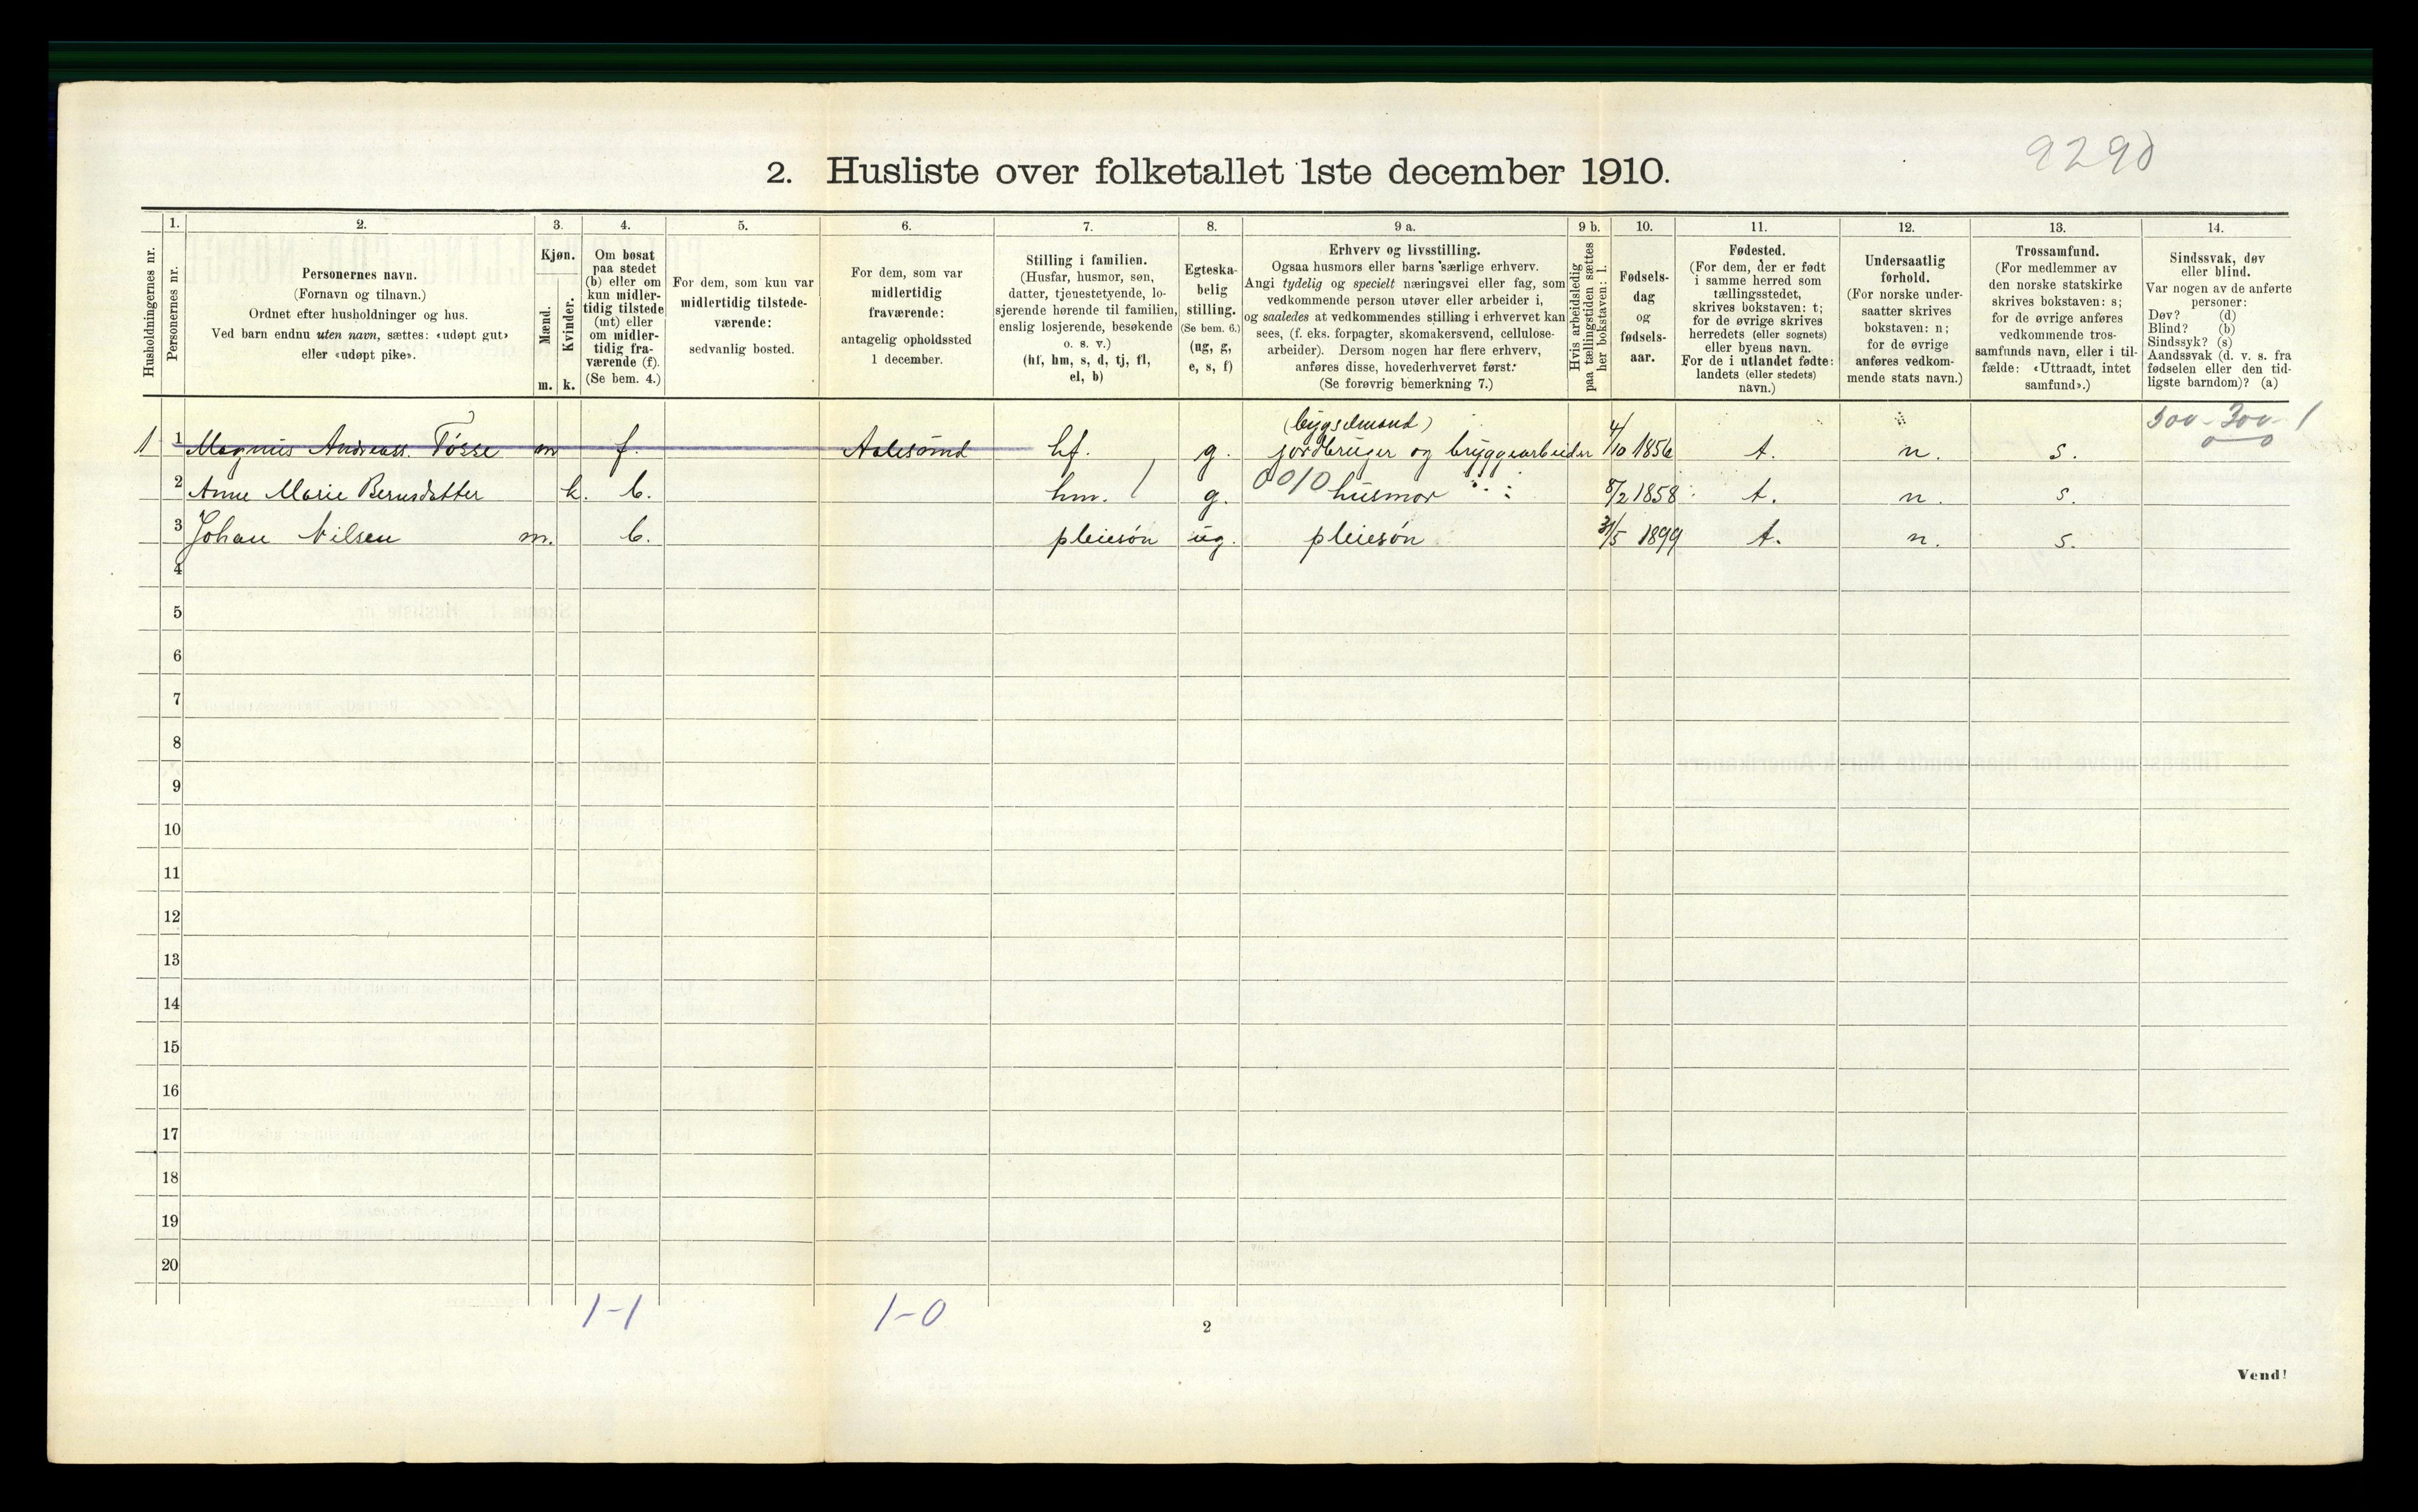 9290
2. Husliste over folketallet 1ste december 1910.
Husholdningernes nr.
1.
Personernes nr.
2.
Personernes navn.
(Fornavn og tilnavn.)
Ordnet efter husholdninger og hus.
Ved barn endnu uten navn, sættes: «udøpt gut»
eller «udøpt pike».
3.
Kjøn.
Mænd.
Kvinder.
m. k.
4.
Om bosat
paa stedet
(b) eller om
kun midler-
tidig tilstede
(mt) eller
om midler-
tidig fra-
værende (f).
(Se bem. 4.)
5.
For dem, som kun var
midlertidig tilstede-
værende:
sedvanlig bosted.
6.
For dem, som var
midlertidig
fraværende:
antagelig opholdssted
1 december.
7.
Stilling i familien.
(Husfar, husmor, søn,
datter, tjenestetyende, lo-
sjerende hørende til familien,
enslig losjerende, besøkende
o. s. v.)
(hf, hm, s, d, tj, fl,
el, b)
8.
Egteska-
belig
stilling.
(Se bem. 6.)
(ug, g,
e, s, f)
9 a.
Erhverv og livsstilling.
Ogsaa husmors eller barns særlige erhverv.
Angi tydelig og specielt næringsvei eller fag, som
vedkommende person utøver eller arbeider i,
og saaledes at vedkommendes stilling i erhvervet kan
sees, (f. eks. forpagter, skomakersvend, cellulose-
arbeider). Dersom nogen har flere erhverv,
anføres disse, hovederhvervet først.
(Se forøvrig bemerkning 7.)
9 b.
Hvis arbeidsledig
paa tællingstiden sættes
her bokstaven: l.
10.
Fødsels-
dag
og
fødsels-
aar.
11.
Fødested.
(For dem, der er født
i samme herred som
tællingsstedet,
skrives bokstaven: t;
for de øvrige skrives
herredets (eller sognets)
eller byens navn.
For de i utlandet fødte:
landets (eller stedets)
navn.)
12.
Undersaatlig
forhold.
(For norske under-
saatter skrives
bokstaven: n;
for de øvrige
anføres vedkom-
mende stats navn.)
13.
Trossamfund.
(For medlemmer av
den norske statskirke
skrives bokstaven: s;
for de øvrige anføres
vedkommende tros-
samfunds navn, eller i til-
fælde: «Uttraadt, intet
samfund».)
14.
Sindssvak, døv
eller blind.
Var nogen av de anførte
personer:
Døv? (d)
Blind? (b)
Sindssyk? (s)
Aandssvak (d. v. s. fra
fødselen eller den tid-
ligste barndom)? (a)
(bygselmand) 300-300-1
0 0
1 1 Magnus Andreass. Tøsse m f. Aalesund hf. g. jordbruger og bryggearbeider 4/10 1856 t. n. s.
2 Anne Marie Bernsdatter k. b. hm. 1 g. 0010 husmor 8/2 1858 t. n. s.
3 Johan Nilsen m. b. pleiesøn ug. pleiesøn 31/5 1899 t. n. s.
4
5
6
7
8
9
10
11
12
13
14
15
16
17
18
19
20
1-1 1-0
2
Vend!